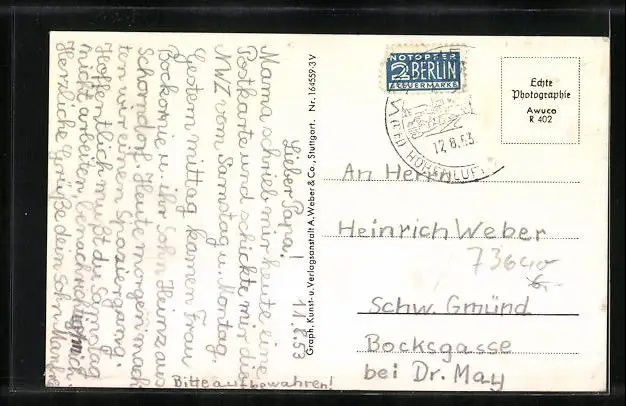 Lieber Papa! 11.8.53
Mama schrieb mir heute eine
Postkarte und schickte mir die
NWZ vom Samstag u. Montag.
Gestern mittag kamen Frau
u. ihr Sohn Heinz aus
Schorndorf. Heute morgen mach
ten wir einen Spaziergang.
Hoffentlich mußt du Samstag
nicht arbeiten.
Herzliche Grüße dein Sohn
Bitte aufbewahren!
Graph. Kunst- u. Verlagsanstalt A. Weber & Co., Stuttgart. Nr. 164559 3 V
NOTOPFER
2 BERLIN
STEUERMARKE
12.8.53
HOHENLUFT
Echte
Photographie
Awuco
R 402
An Herrn
Heinrich Weber
Schw. Gmünd
Bocksgasse
bei Dr. May